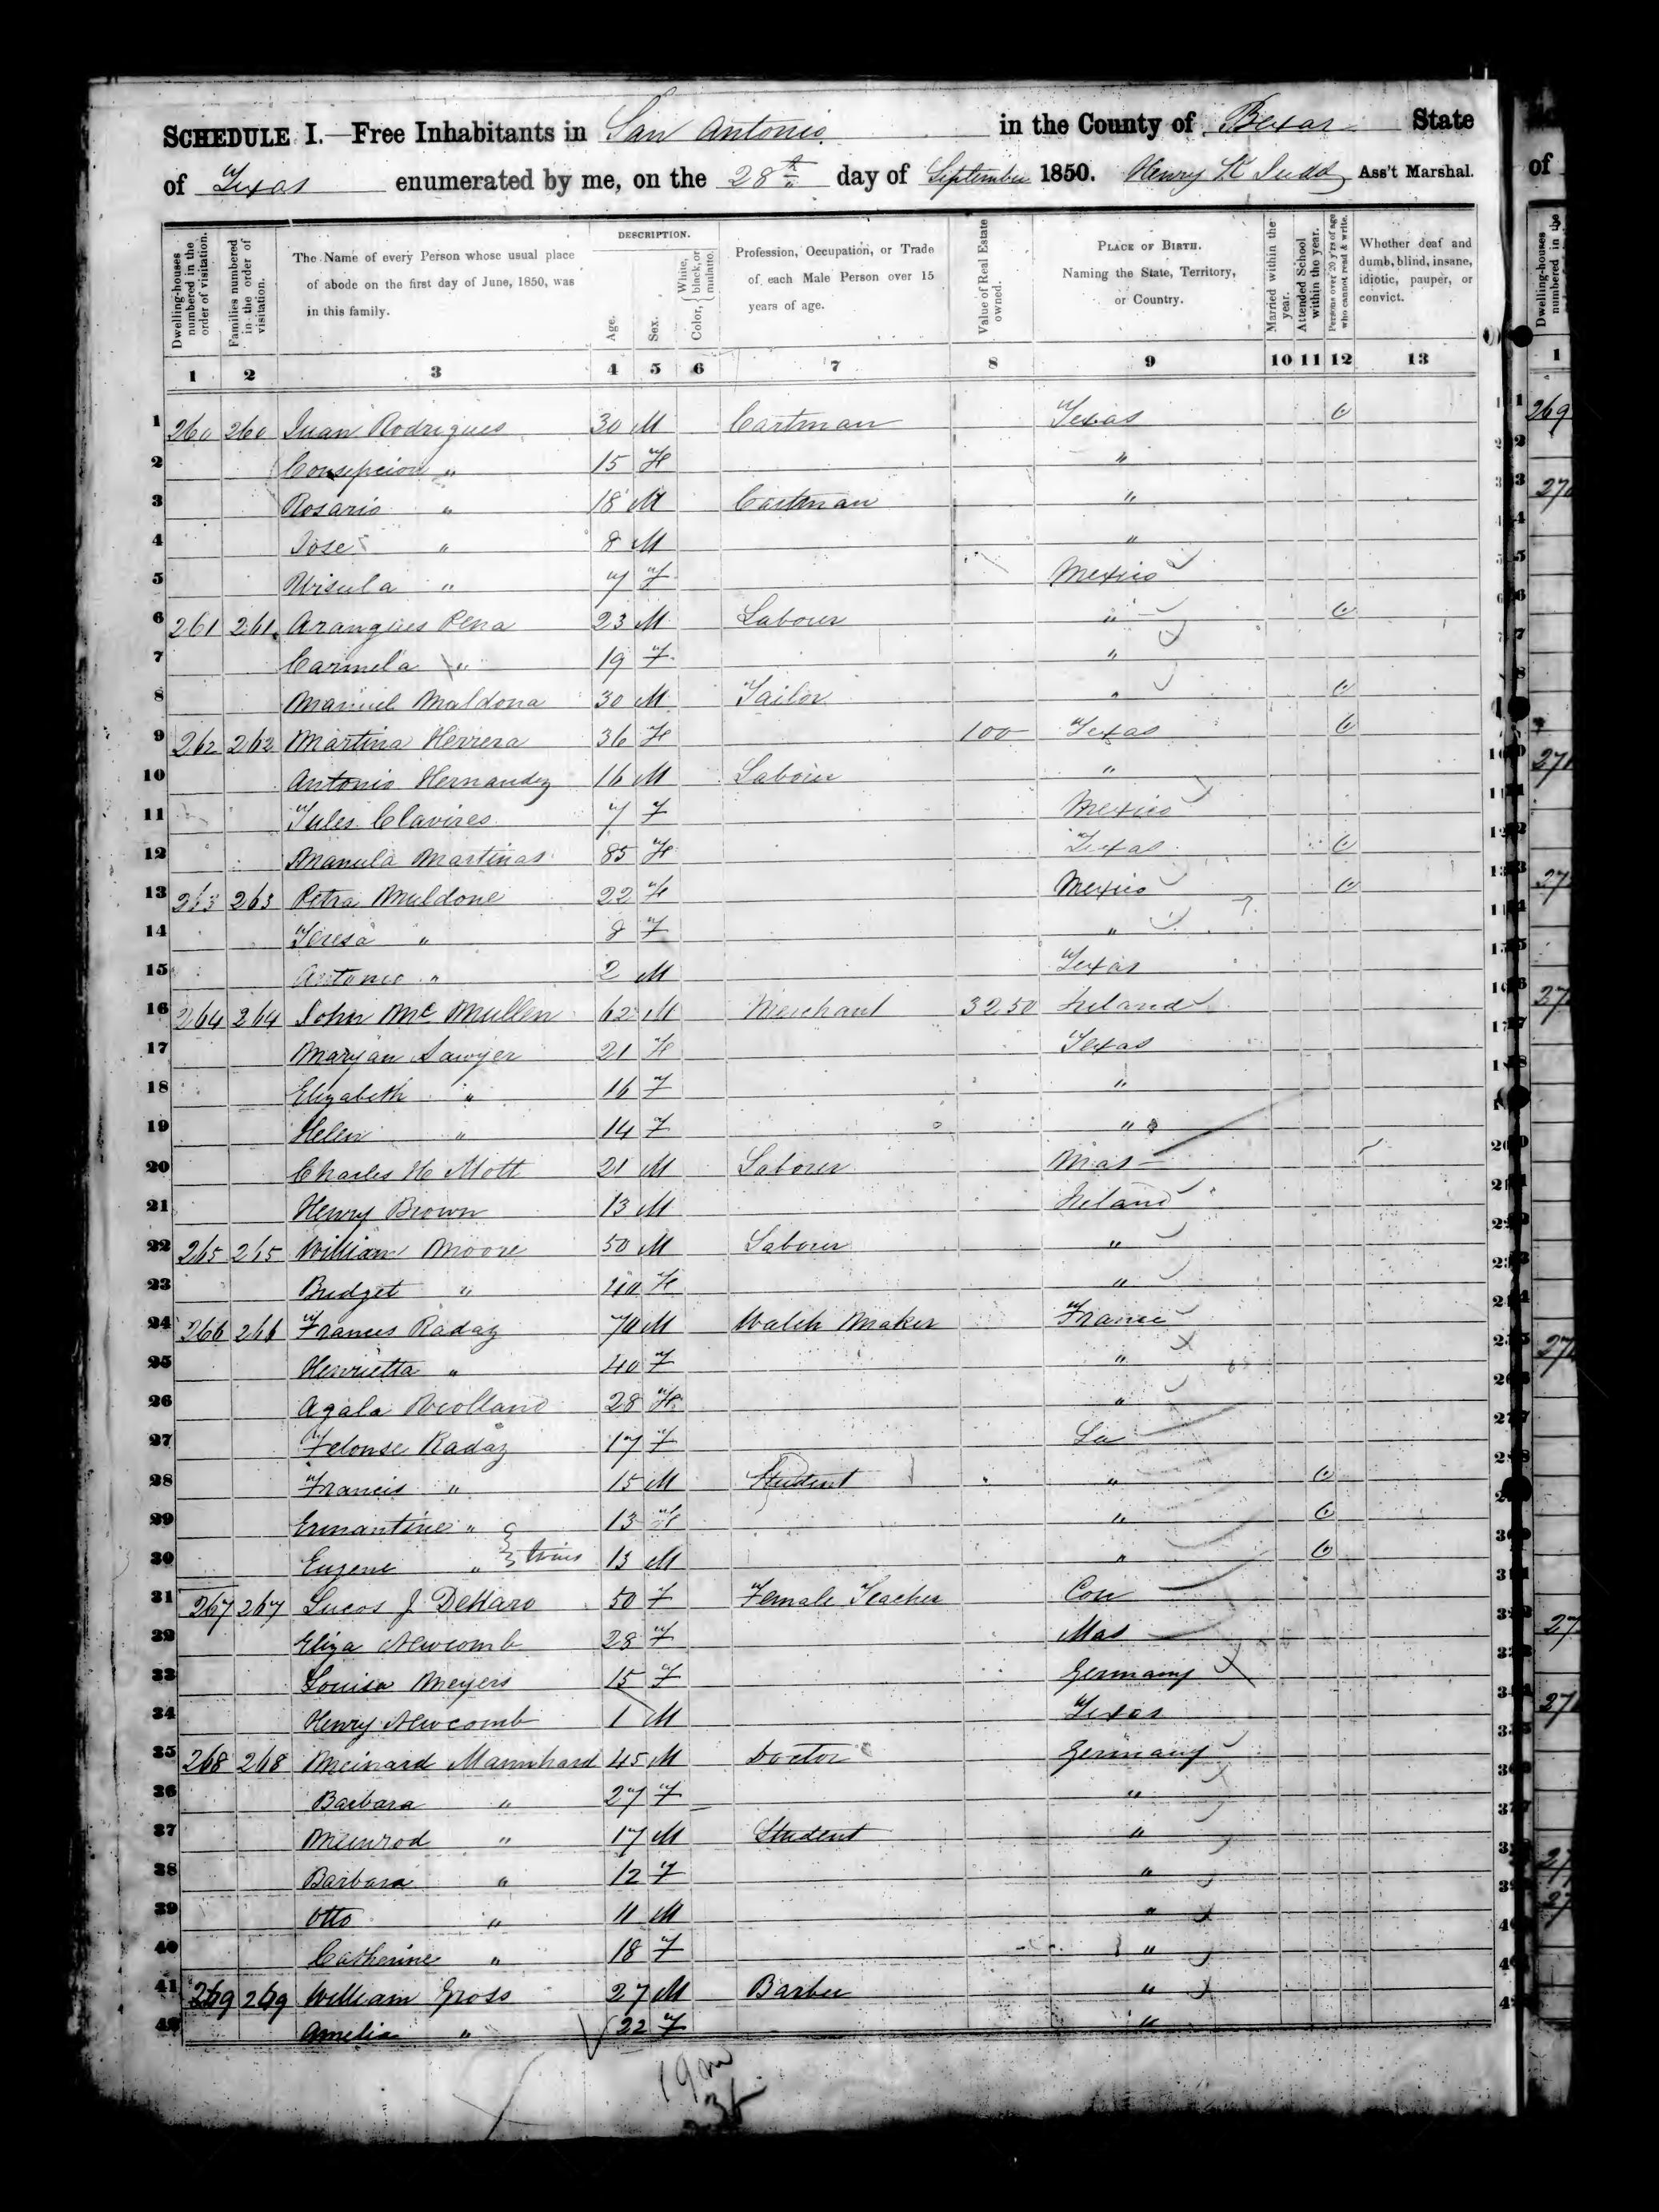 SCHEDULE I.—Free Inhabitants in San Antonio in the County of Bexar State
of Texas enumerated by me, on the 28th day of September 1850. Henry Judd Ass't Marshal.
Dwelling-houses numbered in the order of visitation.
Families numbered in the order of visitation.
The Name of every Person whose usual place of abode on the first day of June, 1850, was in this family.
DESCRIPTION.
Age.
Sex.
Color, { White, black, or mulatto.
Profession, Occupation, or Trade of each Male Person over 15 years of age.
Value of Real Estate owned.
PLACE OF BIRTH. Naming the State, Territory, or Country.
Married within the year.
Attended School within the year.
Persons over 20 y'rs of age who cannot read & write.
Whether deaf and dumb, blind, insane, idiotic, pauper, or convict.
1 2 3 4 5 6 7 8 9 10 11 12 13
1 260 260 Juan Rodrigues 30 M Cartman Texas
2 Consepcion " 15 F "
3 Rosario " 18 M Cartman "
4 Jose " 8 M "
5 Ursula " 7 F Mexico
6 261 261 Arangues Pena 23 M Labourer "
7 Carmela " 19 F "
8 Manuel Maldona 30 M Tailor "
9 262 262 Martina Herrera 36 F 100 Texas
10 Antonio Hernandez 16 M Labourer "
11 Jules Clavires 7 F Mexico
12 Manula Martinas 85 F Texas
13 263 263 Petra Muldone 22 F Mexico
14 Teresa " 8 F "
15 Antonio " 2 M Texas
16 264 264 John McMullen 62 M Merchant 3250 Ireland
17 Maryan Sawyer 21 F Texas
18 Elizabeth " 16 F "
19 Helen " 14 F "
20 Charles H Mott 21 M Laborer Mas
21 Henry Brown 13 M Ireland
22 265 265 William Moore 50 M Labourer "
23 Bridget " 40 F "
24 266 266 Frances Radaz 70 M Watch Maker France
25 Henrietta " 40 F "
26 Agala 28 F "
27 Felonse Radaz 17 F La
28 Francis " 15 M Student "
29 Ermantine " 13 F "
30 Eugene " } twins 13 M "
31 267 267 Lucos J. DeHaro 50 F Female Teacher Con
32 Eliza Newcomb 28 F Mas
33 Louisa Meyers 15 F Germany
34 Henry Newcomb 1 M Texas
35 268 268 Meinard Mannhard 45 M Doctor Germany
36 Barbara " 27 F "
37 Meinrod " 17 M Student "
38 Barbara " 12 F "
39 Otto " 11 M "
40 Catherine " 18 F "
41 269 269 William Gross 27 M Barber "
42 Amelia " 22 F "
19 m